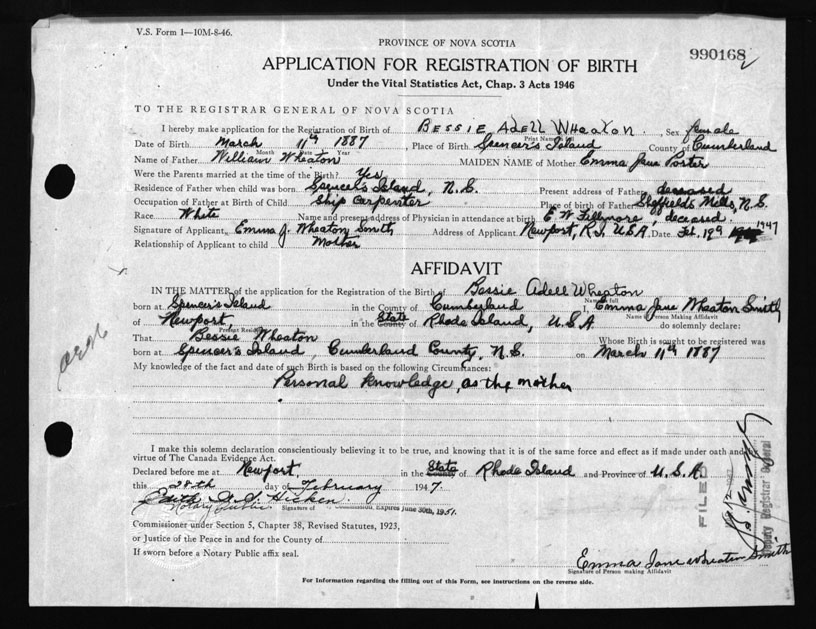 V.S. Form 1—10M-8-46.
PROVINCE OF NOVA SCOTIA
990168
APPLICATION FOR REGISTRATION OF BIRTH
Under the Vital Statistics Act, Chap. 3 Acts 1946
TO THE REGISTRAR GENERAL OF NOVA SCOTIA
I hereby make application for the Registration of Birth of BESSIE ADELL WHEATON, Sex female
Print Name in full
Date of Birth March 11th 1887 Place of Birth Spencer's Island County of Cumberland
Month Date Year
Name of Father William Wheaton MAIDEN NAME of Mother Emma Jane Porter
Were the Parents married at the time of the Birth? Yes
Residence of Father when child was born Spencer's Island, N.S. Present address of Father deceased
Occupation of Father at Birth of Child Ship Carpenter Place of birth of Father Sheffields Mills, N.S.
Race White Name and present address of Physician in attendance at birth E W Fillmore, deceased.
Signature of Applicant Emma J. Wheaton Smith Address of Applicant Newport, R.I., U.S.A. Date Feb. 19th 1947
Relationship of Applicant to child Mother
AFFIDAVIT
IN THE MATTER of the application for the Registration of the Birth of Bessie Adell Wheaton
Name in full
born at Spencer's Island in the County of Cumberland I, Emma Jane Wheaton Smith
Name of Person Making Affidavit
of Newport, in the State County of Rhode Island, U.S.A do solemnly declare:
Present Residence
That Bessie Wheaton Whose Birth is sought to be registered was
born at Spencer's Island, Cumberland County, N.S. on March 11th 1887
My knowledge of the fact and date of such Birth is based on the following Circumstances:
Personal knowledge, as the mother
arch
I make this solemn declaration conscientiously believing it to be true, and knowing that it is of the same force and effect as if made under oath and by
virtue of The Canada Evidence Act.
Declared before me at Newport, in the State County of Rhode Island and Province of U.S.A.
this 28th day of February 1947.
Notary Public Signature of Commission, Expires June 30th, 1951.
Commissioner under Section 5, Chapter 38, Revised Statutes, 1923,
or Justice of the Peace in and for the County of
If sworn before a Notary Public affix seal.
FILED
Deputy Registrar General
Emma Jane Wheaton Smith
Signature of Person making Affidavit
For Information regarding the filling out of this Form, see instructions on the reverse side.